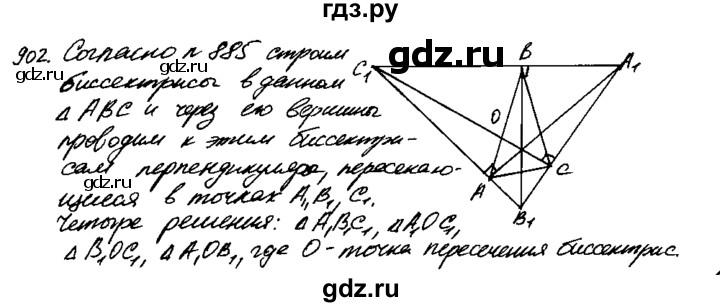 гдз.ру
902. Согласно п 885 строим
биссектрисы в данном
△ ABC и через его вершины
проводим к этим биссектри-
сам перпендикуляры, пересекаю-
щиеся в точках A₁, B₁, C₁.
Четыре решения: △ A₁B₁C₁, △ A₁OC₁,
△ B₁OC₁, △ A₁OB₁, где O - точка пересечения биссектрис.
gdz.ru
C₁ B A₁
O
A C
B₁
gdz.ru
gdz.ru
gdz.ru